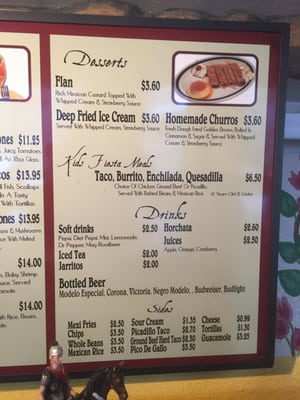 Desserts
Flan $3.60
Rich Mexican Custard Topped With
Whipped Cream & Strawberry Sauce
Deep Fried Ice Cream $3.60
Served With Whipped Cream & Strawberry Sauce
Homemade Churros $3.60
Fresh Dough Fried Golden Brown, Rolled In
Cinnamon & Sugar & Served With Whipped
Cream & Strawberry Sauce
Kids Fiesta Meals
Taco, Burrito, Enchilada, Quesadilla $6.50
Choice Of Chicken, Ground Beef Or Picadillo.
Served With Refried Beans & Mexican Rice 10 Years Old & Under
Drinks
Soft drinks $2.50
Pepsi, Diet Pepsi, Mist, Lemonade,
Dr Pepper, Mug Rootbeer
Iced Tea $2.00
Jarritos $2.00
Horchata $2.60
Juices $2.50
Apple, Orange, Cranberry
Bottled Beer
Modelo Especial, Corona, Victoria, Negro Modelo, , Budweiser, Budlight
Sides
Mexi Fries $2.50
Chips $3.50
Whole Beans $3.50
Mexican Rice $3.50
Sour Cream $1.35
Picadillo Taco $2.70
Ground Beef Hard Taco $2.50
Pico De Gallo $3.50
Cheese $0.99
Tortillas $1.30
Guacamole $3.25
ones $11.25
Juicy Tomatoes
cos $13.95
Fish, Scallops
ones $13.95
& Mushrooms
With Melted
$14.00
Baby Shrimp
$14.00